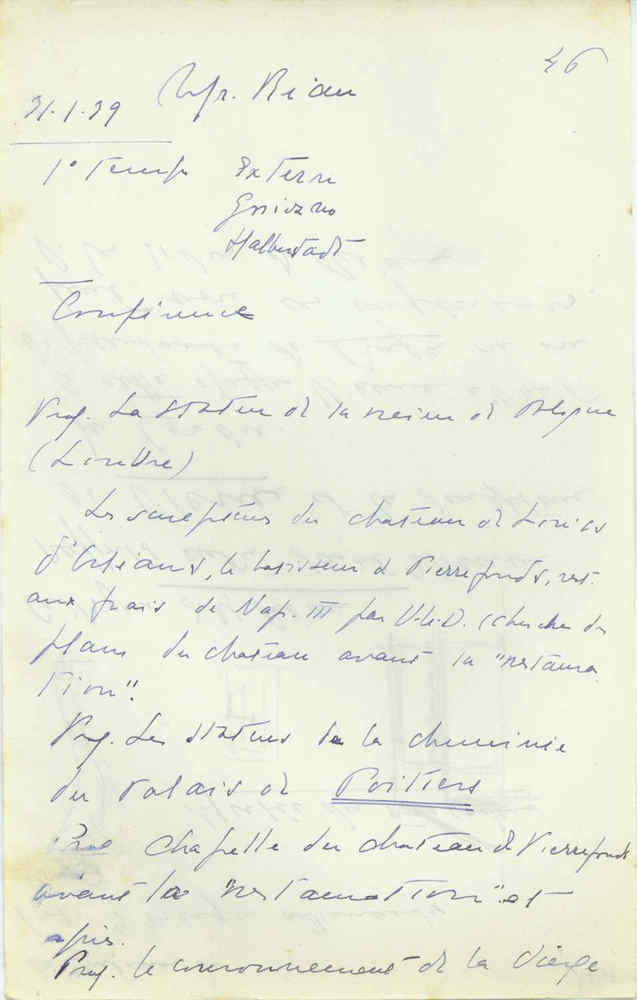 46
31.1.39 Mgr. Réau
1º Temps Externe
Halberstadt
Conférence
Proj. La statue de la reine de
(Louvre)
Les sculptures du chateau de Louis
d'Orléans, le batisseur de Pierrefonds, rest.
aux frais de Nap. III par V.-le-D. (chercher des
plans du chateau avant la "restaura
tion".
Proj. Les statues de la cheminée
du Palais de Poitiers
chapelle du chateau de Pierrefonds
avant la "restauration" et
après.
Proj. le couronnement de la Vierge